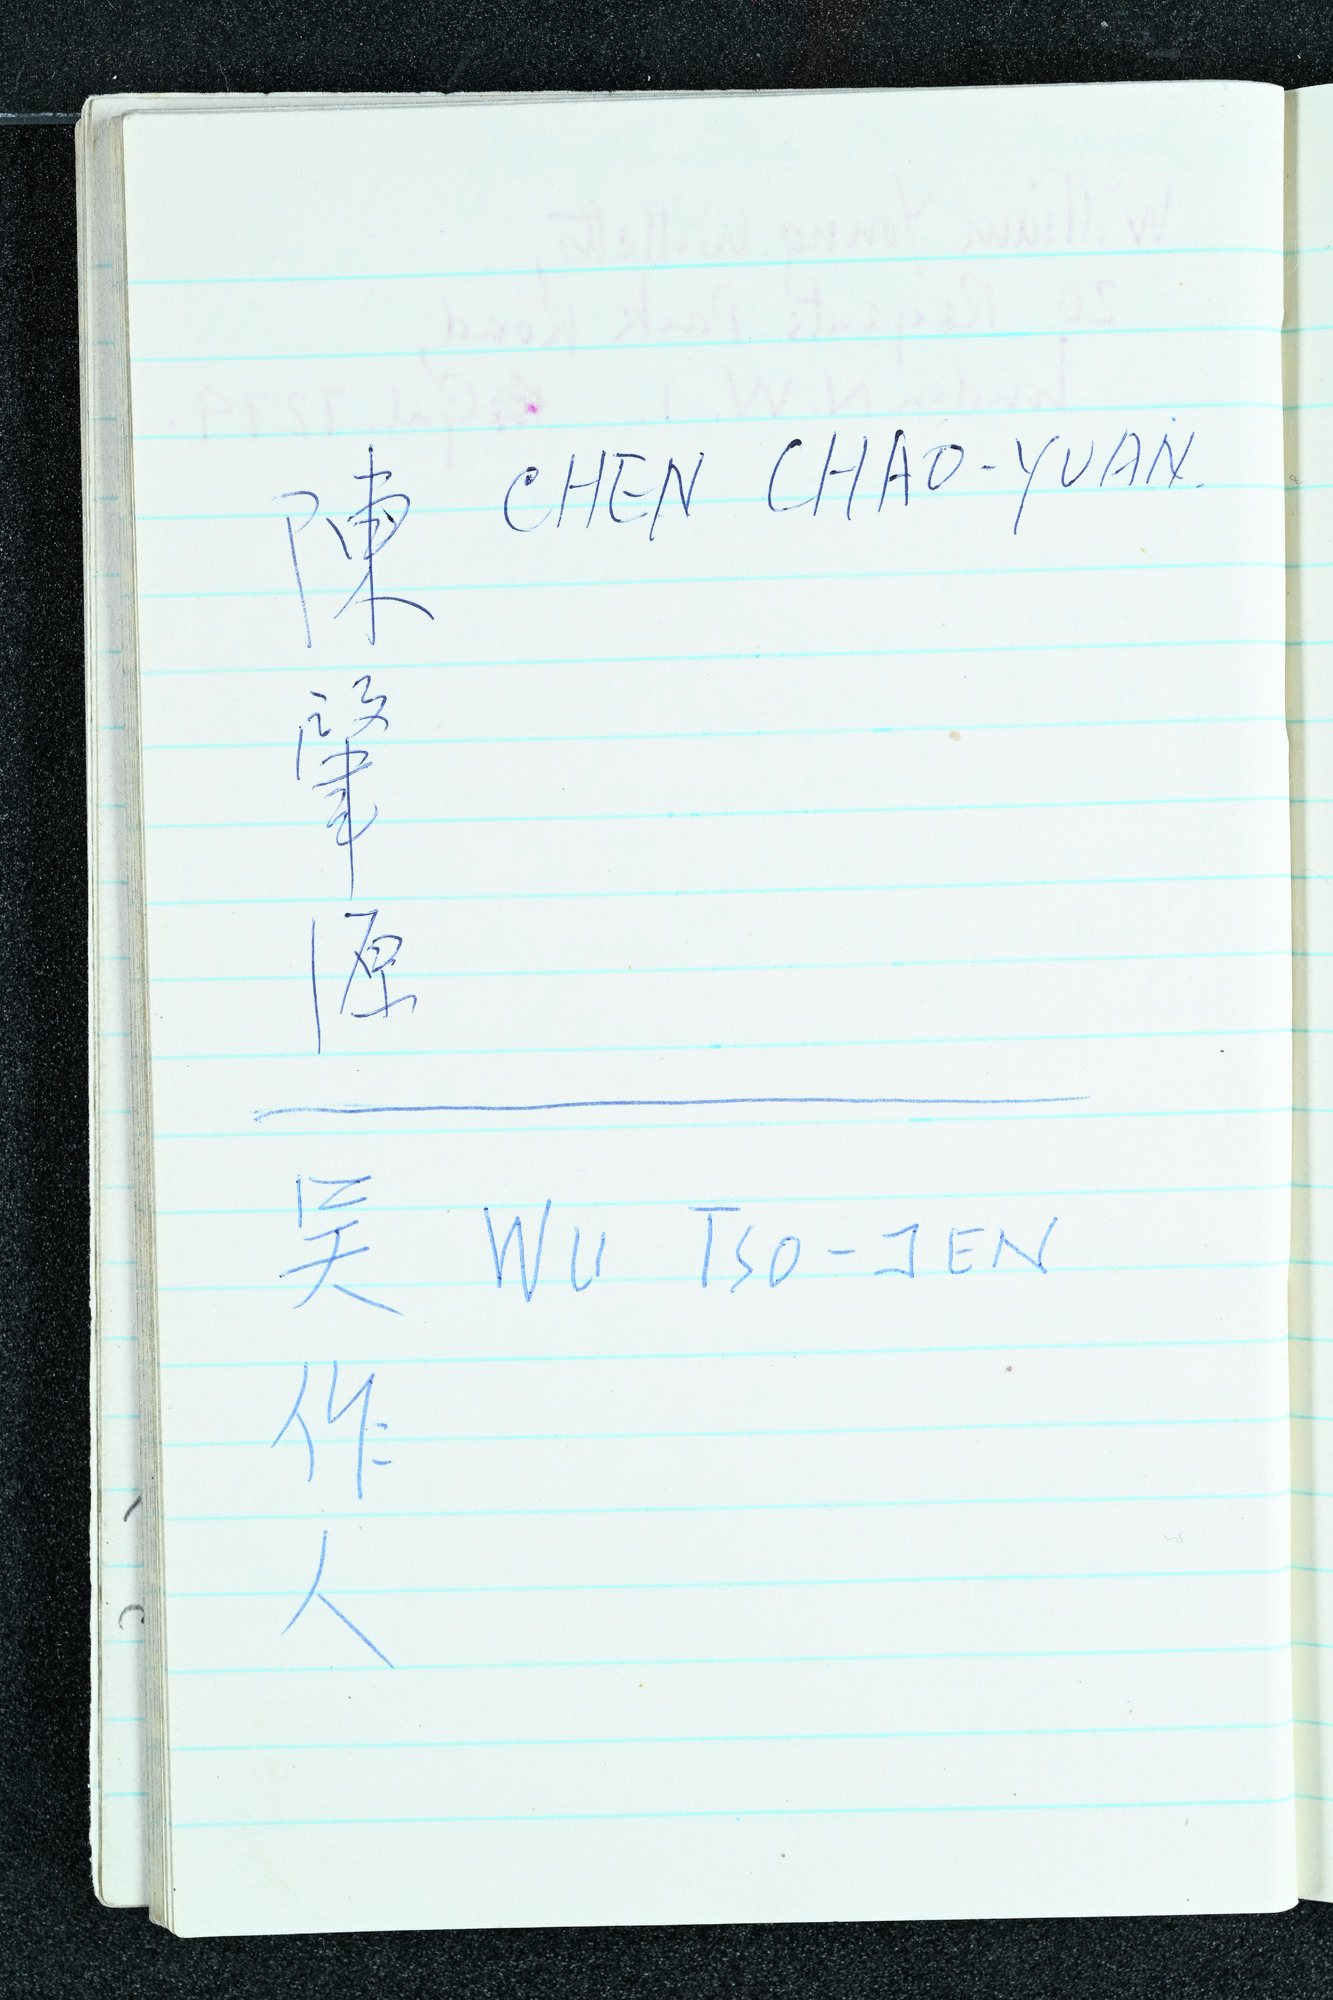 陳肇源 CHEN CHAO-YUAN.
吴作人 WU TSO-JEN